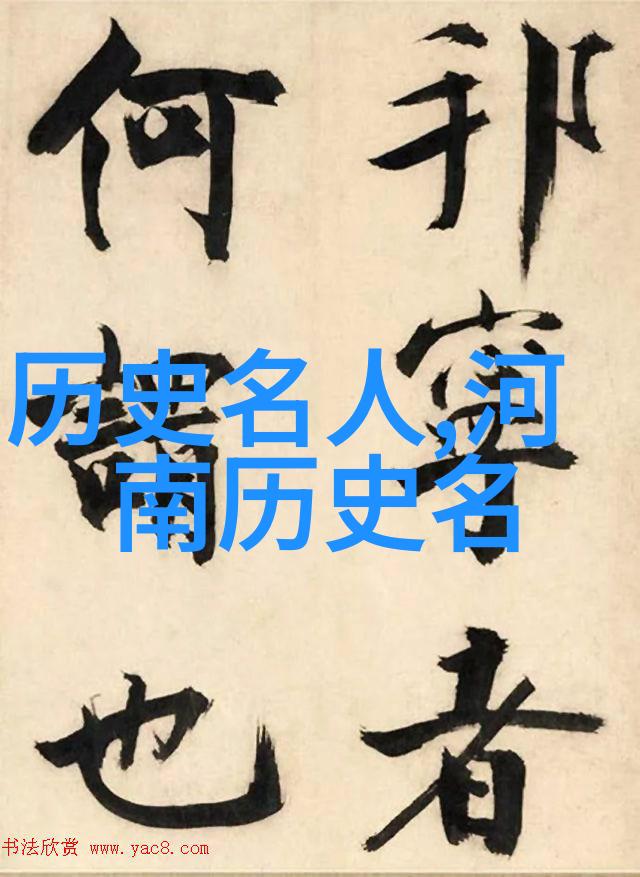 邦寧者
何謂也
历史名人,河
南历史名
书法欣赏 www.yac8.com